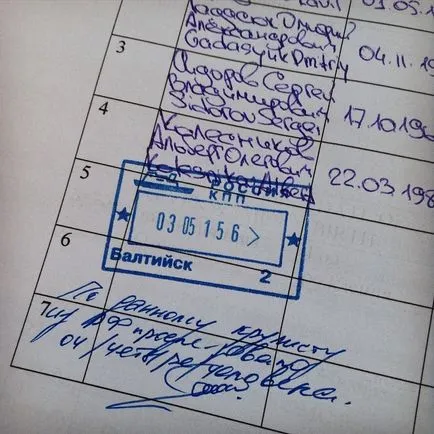 01.05.1
Дмитрий
Александрович
Gadasyuk Dmitry
04.11.19
3
Сидоров Сергей
Владимирович
Sidorov Sergei
17.10.196
4
Колесников
Альберт Олегович
22.03.198
5
РОССИЯ
КПП
03 05 156 >
Балтийск 2
6
По данному круизу
из РФ
04 / четыре / человека.
7